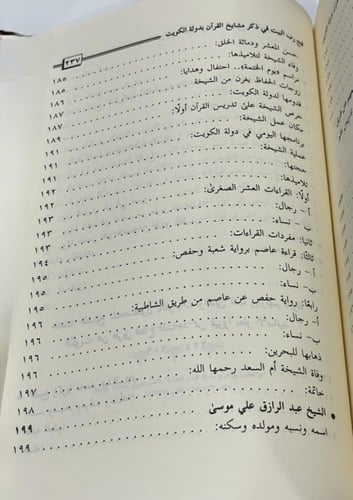 فتح رب البيت في ذكر مشايخ القرآن بدولة الكويت
٢٣٧
حسن المعشر ودماثة الخلق:
وفاء الشيخة لتلاميذها: ١٨٥
مراسم «يوم الختمة».. احتفال وهدايا: ١٨٥
زوجات الحفاظ يغرن من الشيخة ١٨٥
قدومها لدولة الكويت: ١٨٦
حرص الشيخة على تدريس القرآن أولًا: ١٨٧
مكان عمل الشيخة: ١٨٧
برنامجها اليومي في دولة الكويت: ١٨٩
عملية الشيخة: ١٩١
حجتها: ١٩١
تلاميذها: ١٩١
أولًا: القراءات العشر الصغرى: ١٩٢
أ- رجال: ١٩٣
ب- نساء: ١٩٣
ثانيا: مفردات القراءات: ١٩٣
ثالثًا: قراءة عاصم برواية شعبة وحفص: ١٩٤
أ- رجال: ١٩٥
ب- نساء: ١٩٥
رابعًا: رواية حفص عن عاصم من طريق الشاطبية: ١٩٥
أ- رجال: ١٩٦
ب- نساء: ١٩٦
ذهابها للبحرين: ١٩٦
وفاة الشيخة أم السعد رحمها الله: ١٩٦
خاتمة: ١٩٧
● الشيخ عبد الرازق علي موسى ١٩٨
اسمه ونسبه ومولده وسكنه: ١٩٩
١٩٩